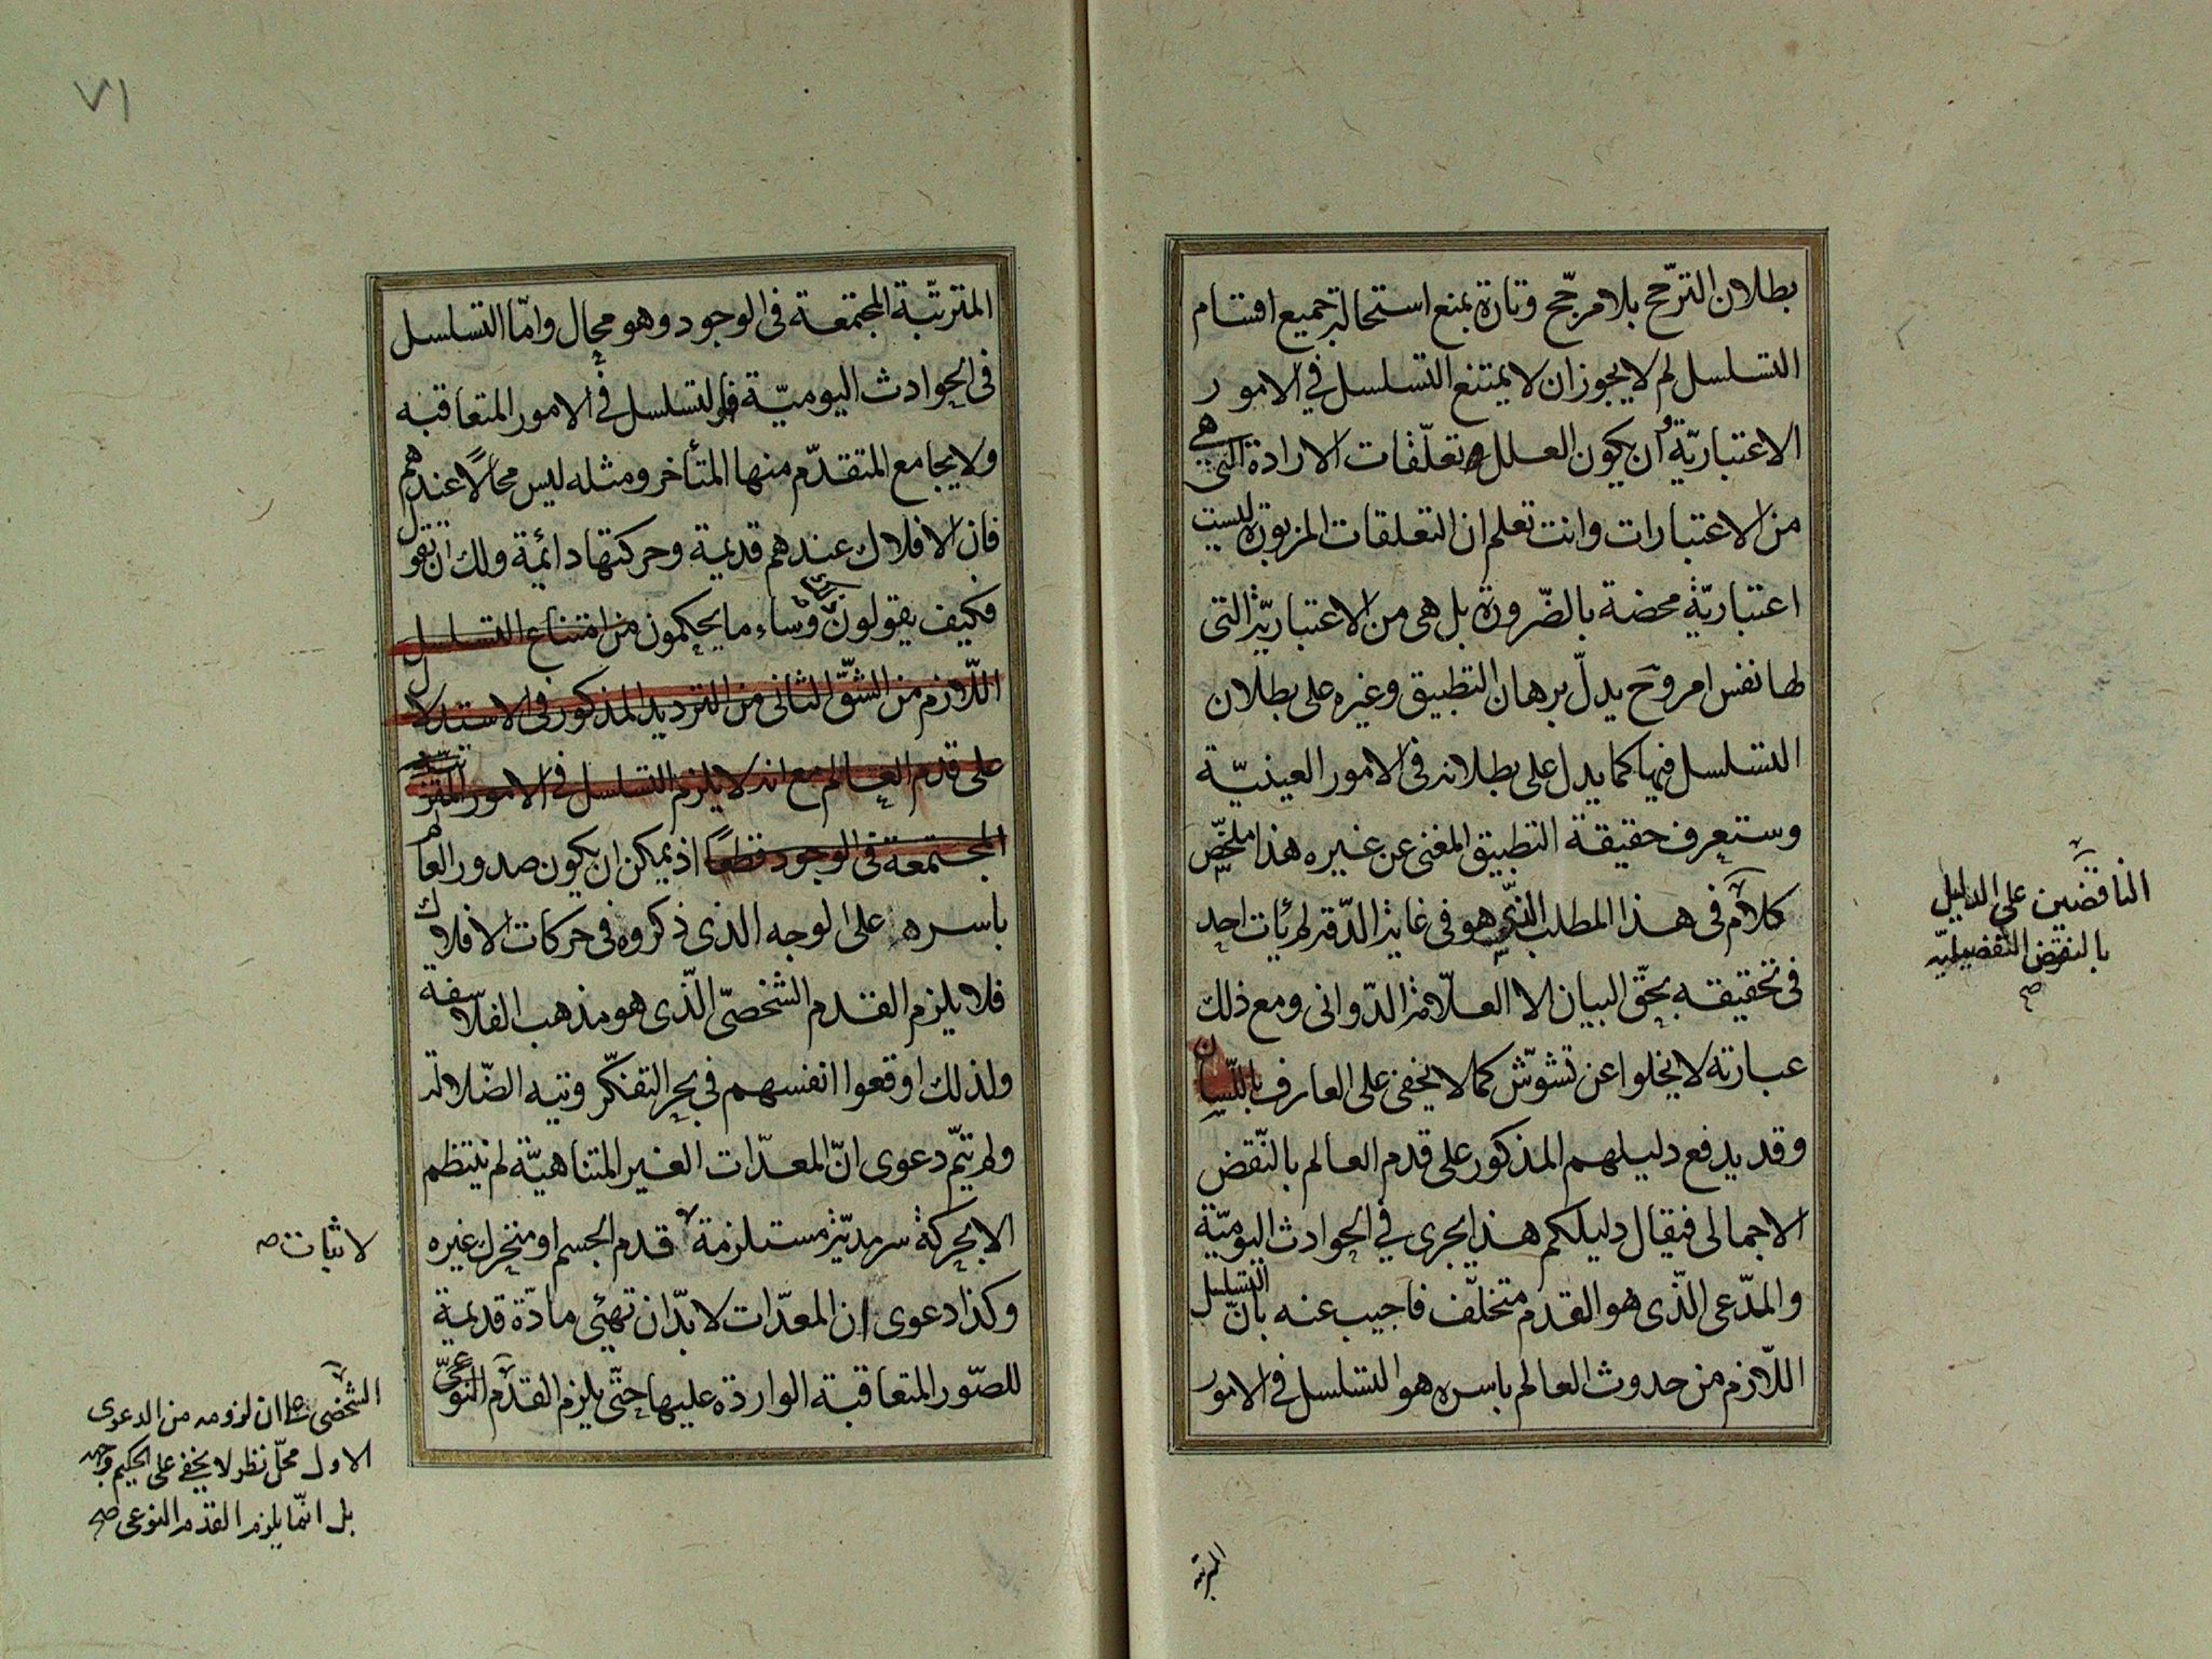 بطلان الترّجح بلا مرجّح وتارة بمنع استحالة جميع اقسام
التسلسل لم لا يجوز ان لا يمتنع التسلسل في الامور
الاعتباريّة وان يكون العلل تعلّقات الارادة التى هي
من الاعتبارات وانت تعلم ان التعلقات المزبورة ليست
اعتباريّة محضة بالضّرورة بل هى من الاعتباريّة التى
لها نفس امر وح يدلّ برهان التطبيق وغيره على بطلان
التسلسل فيها كما يدل على بطلانه فى الامور العينيّة
وستعرف حقيقة التطبيق المغنى عن غيره هذا ملخّص
كلام فى هذا المطلب الذى هو فى غاية الدّقة لم يأت احد
فى تحقيقه بحقّ البيان الا العلّامة الدّوانى ومع ذلك
عبارته لا يخلوا عن تشوّش كما لا يخفى على العارف باللّسان
وقد يدفع دليلهم المذكور على قدم العالم بالنّقض
الاجمالى فيقال دليلكم هذا يجرى في الحوادث اليوميّة
والمدّعى الّذى هو القدم متخلّف فاجيب عنه بانّ التسلسل
اللّازم من حدوث العالم باسره هو التسلسل في الامور
الناقضين على الدليل
بالنقض التفضيليّه
صح
المترتبة
٧١
المترتّبة المجتمعة فى الوجود وهو محال وامّا التسلسل
فى الحوادث اليوميّة فالتسلسل في الامور المتعاقبه
ولا يجامع المتقدّم منها المتأخر ومثله ليس محالًا عندهم
فان الافلاك عندهم قديمة وحركتها دائمة ولك ان تقول
فكيف يقولون وساء ما يحكمون من امتناع التسلسل
اللّازم من الشّق الثانى من الترديد المذكور فى الاستدلال
على قدم العالم مع انه لا يلزم التسلسل في الامور المترتبة
المجتمعة فى الوجود قطعًا اذ يمكن ان يكون صدور العالم
باسره على الوجه الذى ذكروه فى حركات الافلاك
فلا يلزم القدم الشخصىّ الّذى هو مذهب الفلاسفة
ولذلك اوقعوا انفسهم في بحر التفكّر وتيه الضّلالة
ولم يتمّ دعوى انّ المعدّات الغير المتناهيّة لم ينتظم
الا بحركة سرمديّة مستلزمة قدم الجسم او متحرك غيره
وكذا دعوى ان المعدّات لا بدّ ان تهيّئ مادّة قديمة
للصّور المتعاقبة الواردة عليها حتّى يلزم القدم النوعىّ
لاثبات صح
الشخصى على ان لزومه من الدعوى
الاول محلّ نظر لا يخفى على الحكيم وجهه
بل انّما يلزم القدم النوعى صح